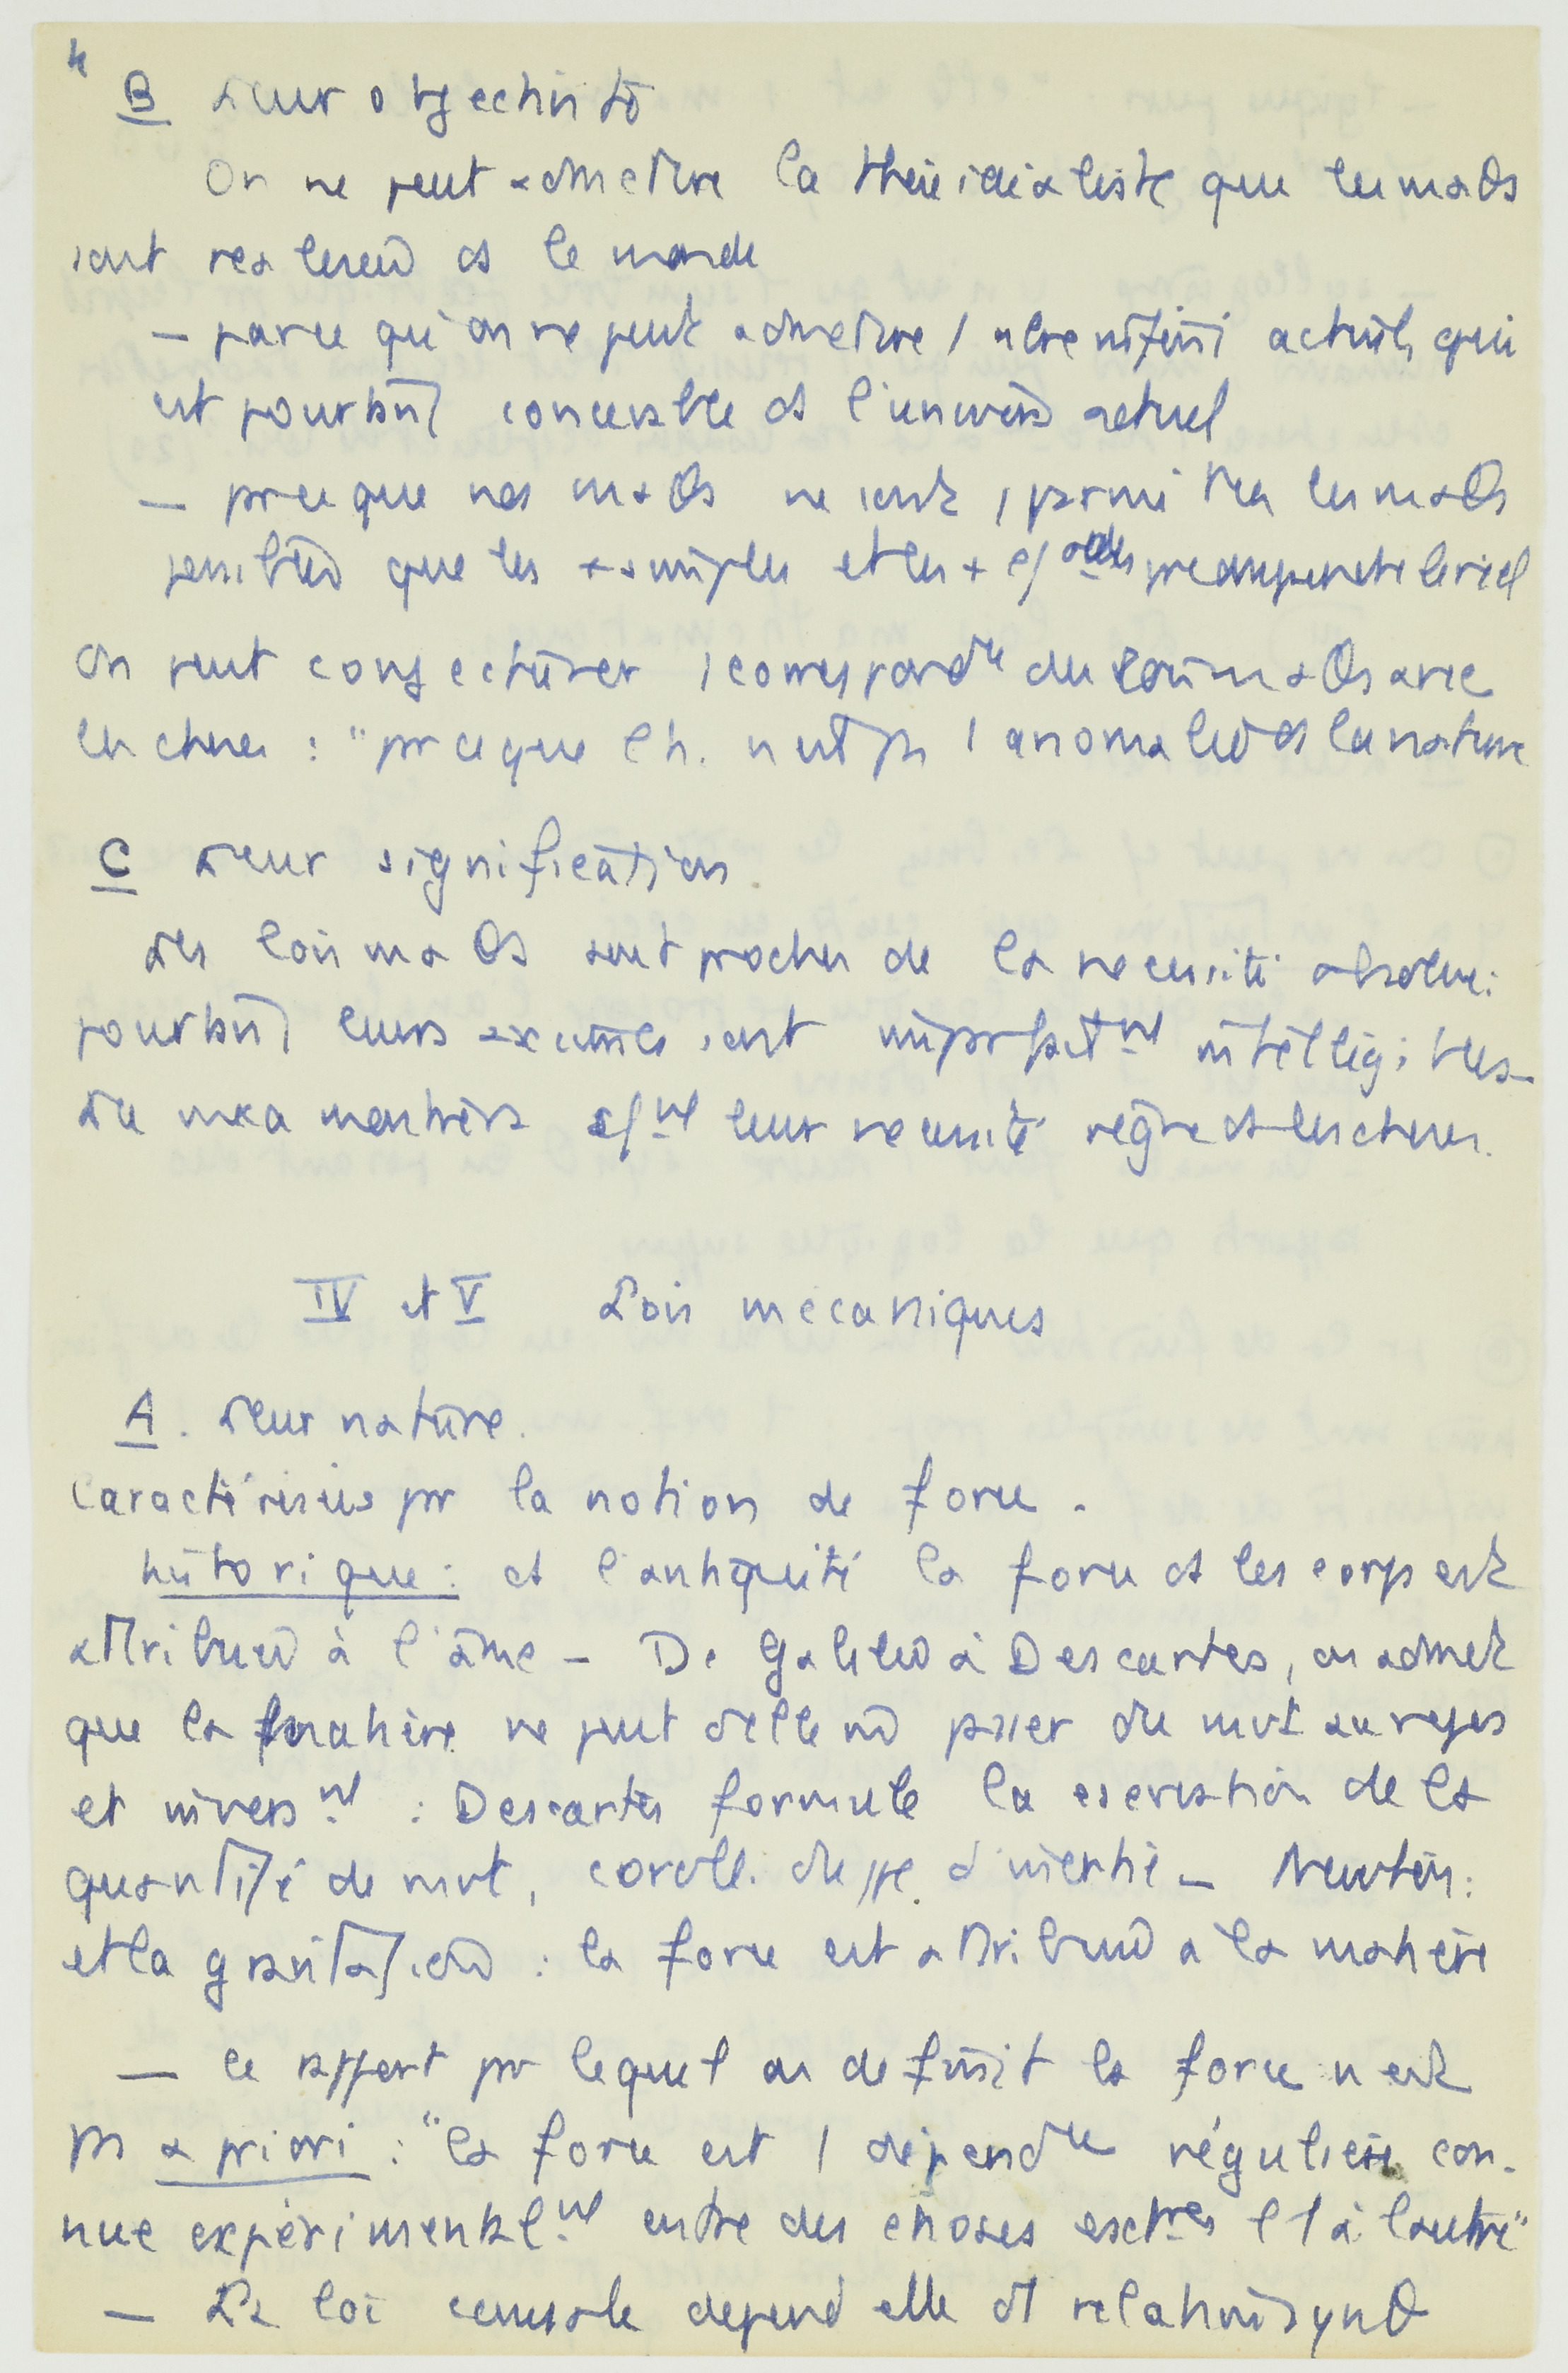 4
B Leur objectivité
On ne peut admettre la thèse idéaliste que les maths
sont réalisées ds le monde
— parce qu'on ne peut admettre 1 nbre infini actuel, qui
est pourtant concevable ds l'univers actuel
— parce que nos maths ne sont, parmi les maths
possibles que les + simples et les +
On peut conjecturer 1 correspondce des lois maths avec
les choses : "parce que l'h. n'est pas 1 anomalie ds la nature
C Leur signification.
Les lois maths sont proches de la nécessité absolue :
pourtant leurs axiomes sont imparfaitemt intelligibles –
leur nécessité règne ds les choses.
IV et V Lois mécaniques
A. Leur nature.
Caractérisées par la notion de force.
historique : ds l'antiquité la force ds les corps est
attribuée à l'âme – De Galilée à Descartes, on admet
que la matière ne peut d'elle même passer du mvt au repos
et inversemt : Descartes formule la conservation de la
quantité de mvt, coroll. du ppe. d'inertie – Newton :
et la gravitation : la force est attribuée à la matière
— Le rapport par lequel on définit la force n'est
pas a priori : "la force est 1 dépendce régulière con-
nue expérimentalemt entre des choses extres l'1 à l'autre"
— La loi causale dépend elle d'1 relation synth